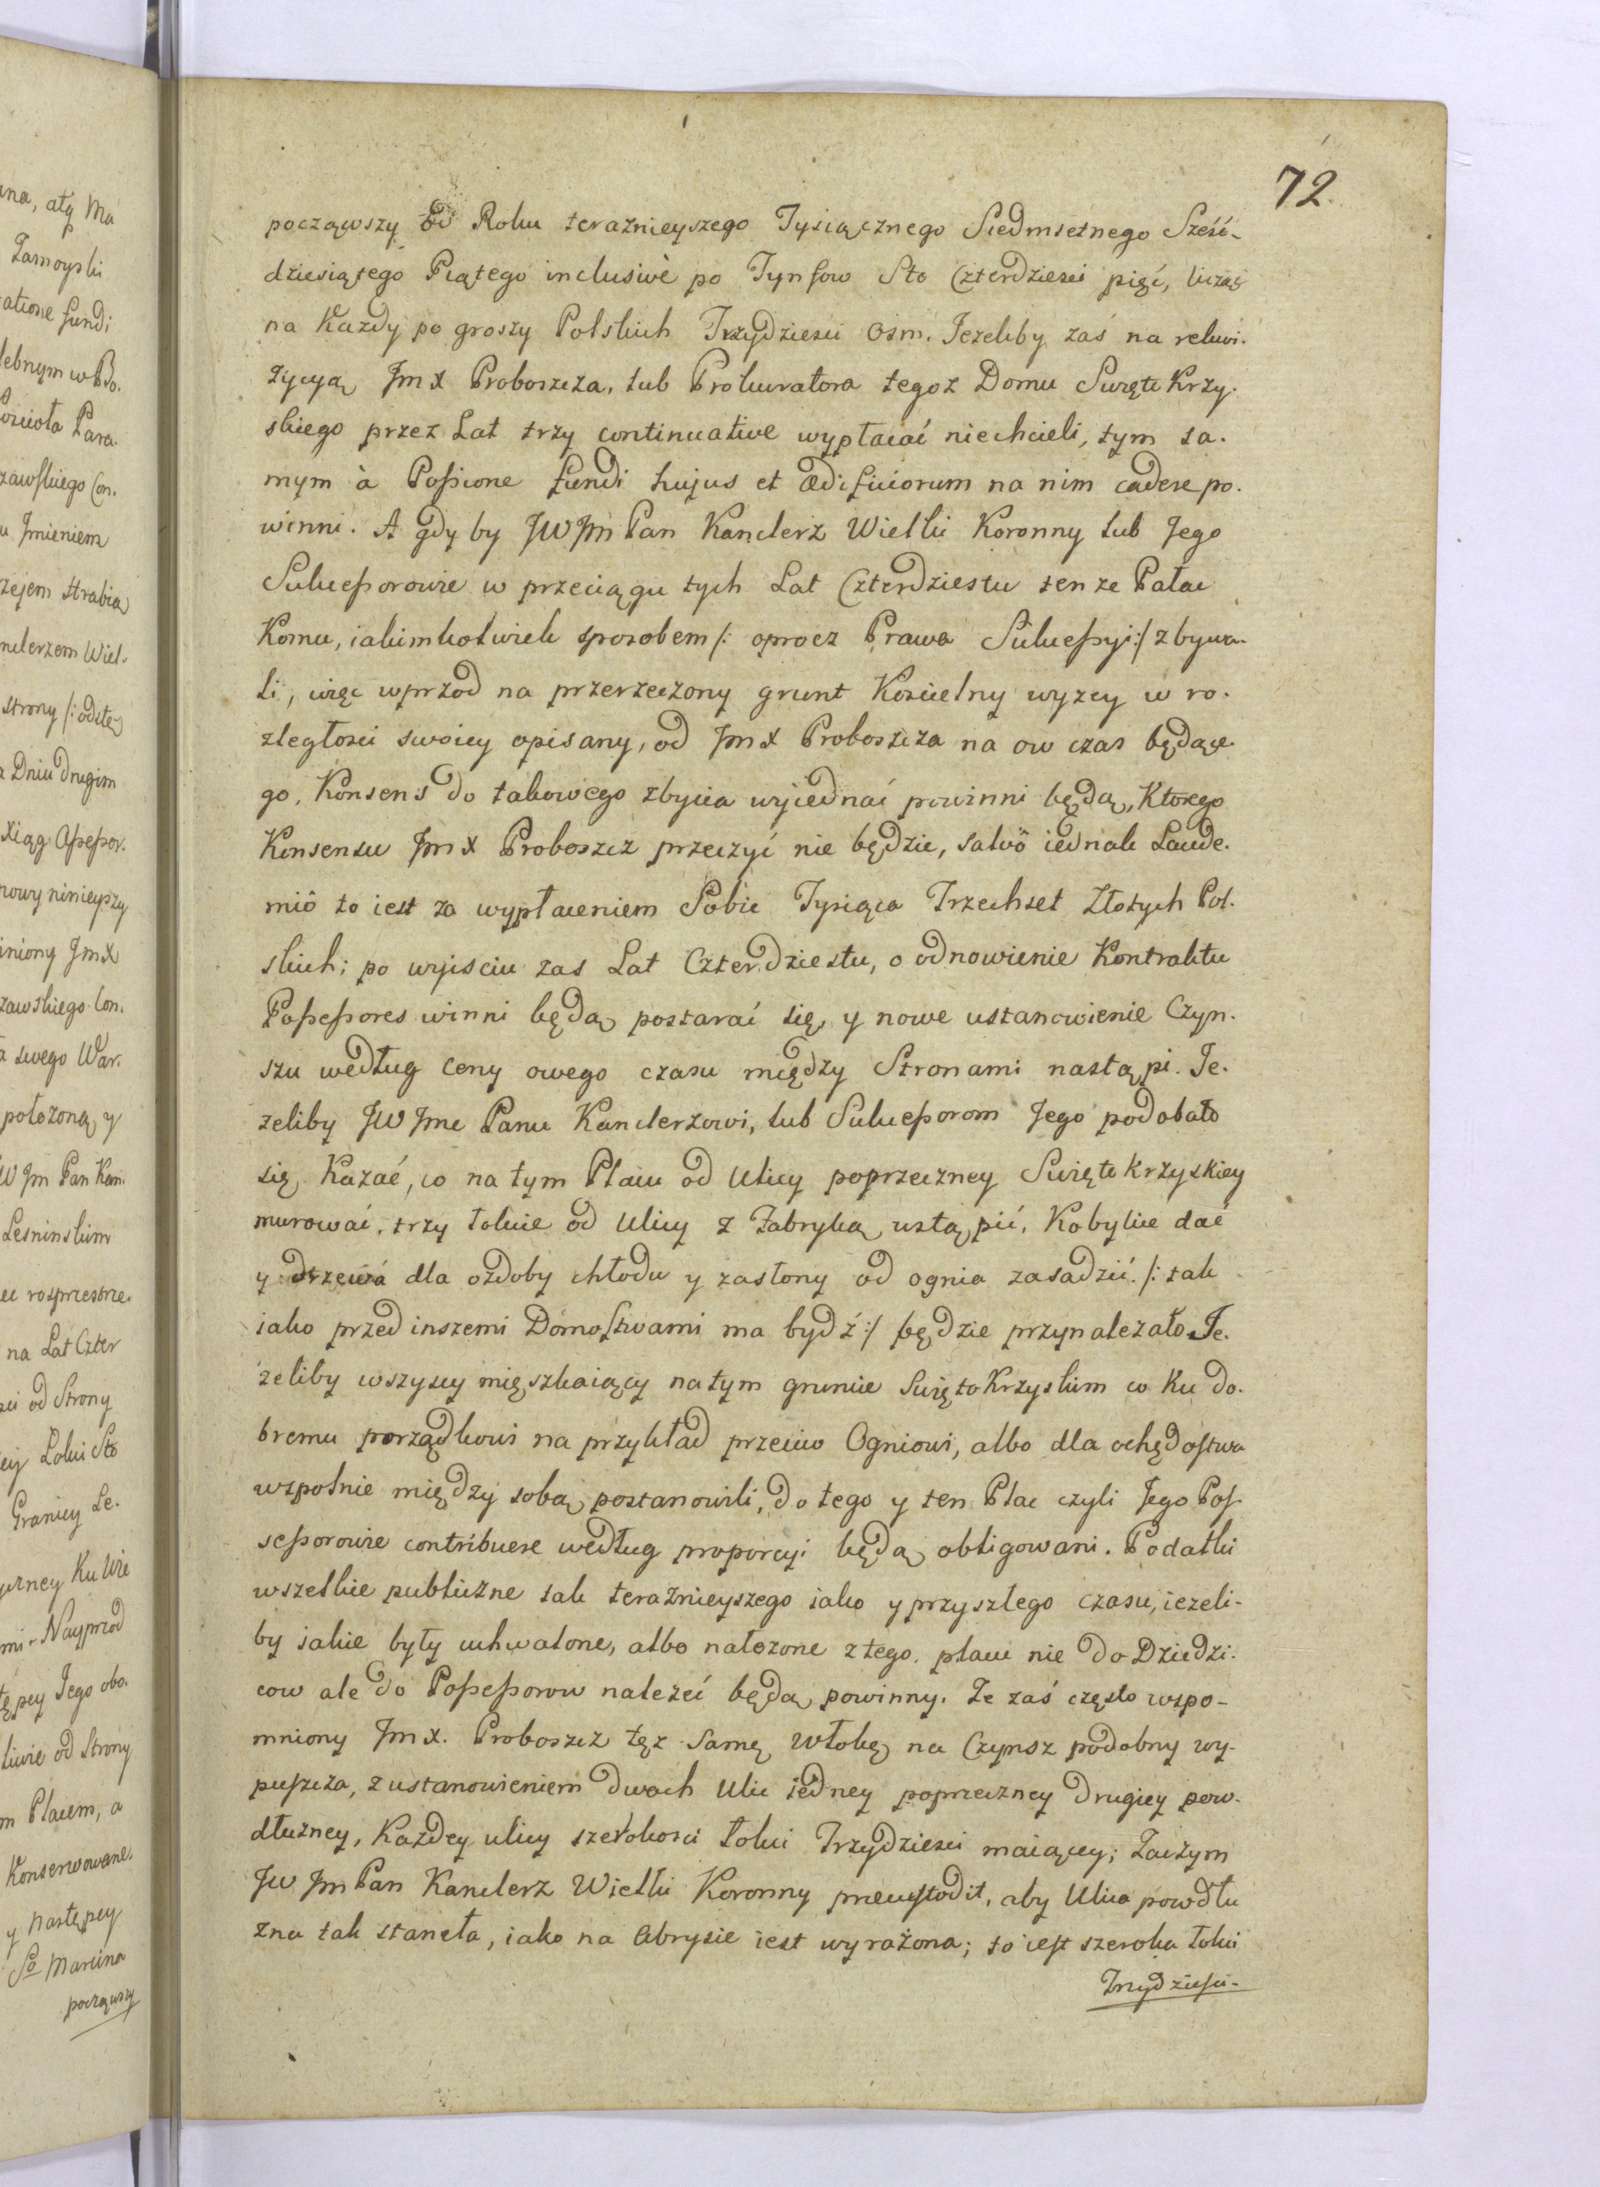 72.
począwszy Od Roku teraznieyszego Tysiącznego Siedmsetnego Sześć-
dziesiątego Piątego inclusivè po Tynfow Sto Czterdziesci pięć, licząc
na Kazdy po groszy Polskich Trzydziesci Osm. Jezeliby zaś na rekwi-
zycyą Jm X Proboszcza, lub Prokuratora tegoz Domu Swięto Krzy-
skiego przez Lat trzy continuative wypłacać niechcieli, tym sa-
mym à Possione fundi hujus et ædificiorum na nim cadere po-
winni. A gdy by JW Jm Pan Kanclerz Wielki Koronny lub Jego
Sukcessorowie w przeciągu tych Lat Czterdziestu ten ze Pałac
Komu, iakimkolwiek sposobem /: oprocz Prawa Sukcessyi :/ zbywa-
li, więc wprzod na przerzeczony grunt Koscielny wyzey w ro-
zległosci swoiey opisany, od Jm X Proboszcza na ow czas będące-
go, Konsens do takowego zbycia wyiednać powinni będą, Ktorego
Konsensu Jm X Proboszcz przeczyć nie będzie, salvô iednak Laude-
miô to iest za wypłaceniem Sobie Tysiąca Trzechset Złotych Pol-
skich; po wyisciu zas Lat Czterdziestu, o odnowienie Kontraktu
Possessores winni będą postarać się, y nowe ustanowienie Czyn-
szu według ceny owego czasu między Stronami nastąpi. Je-
zeliby JW Jmc Panu Kanclerzowi, lub Sukcessorom Jego podobało
się Kazać, co na tym Placu od Ulicy poprzeczney Swięto Krzyskiey
murować, trzy łokcie od Ulicy z Fabryką ustąpić, Kobylice dać
y drzewa dla ozdoby chłodu y zasłony od ognia zasadzić /: tak
iako przed inszemi Domostwami ma bydź :/ będzie przynalezało. Je-
żeliby wszyscy mięszkaiący na tym gruncie Swięto Krzyskim co Ku do-
bremu porządkowi na przykład przeciw Ogniowi, albo dla ochędostwa
wspolnie między sobą postanowili, do tego y ten Plac czyli Jego Pos-
sessorowie contribuere według proporcyi będą obligowani. Podatki
wszelkie publiczne tak teraźnieyszego iako y przyszłego czasu, iezeli-
by iakie były uchwalone, albo nałozone z tego placu nie do Dziedzi-
cow ale do Possessorow nalezeć będą powinny. Ze zaś często wspo-
mniony Jm X. Proboszcz tęz samę Włokę na Czynsz podobny wy-
puszcza, z ustanowieniem dwoch Ulic iedney poprzeczney drugiey pow-
dłużney, Każdey ulicy szerokosci Łokci Trzydziesci maiącey; Zaczym
JW Jm Pan Kanclerz Wielki Koronny precustodit, aby Ulica powdłu
żna tak staneła, iako na Abrysie iest wyrażona; to iest szeroka łokci
Trzydziesci-